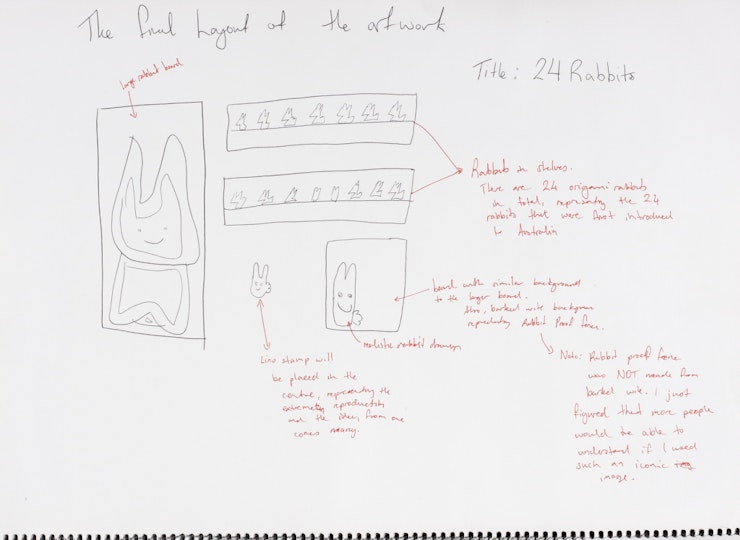 The final Layout of the artwork
Title: 24 Rabbits
large rabbit board
Rabbits in shelves.
There are 24 origami rabbits
in total, representing the 24
rabbits that were first introduced
to Australia
board with similar background
to the larger board.
Also, barked wire background
representing Rabbit Proof fence.
realistic rabbit drawing
Lino stamp will
be placed in the
centre, representing the
reproduction
and the idea, from one
comes many.
Note: Rabbit proof fence
was NOT made from
barked wire. I just
figured that more people
would be able to
understand if I used
such an iconic
image.